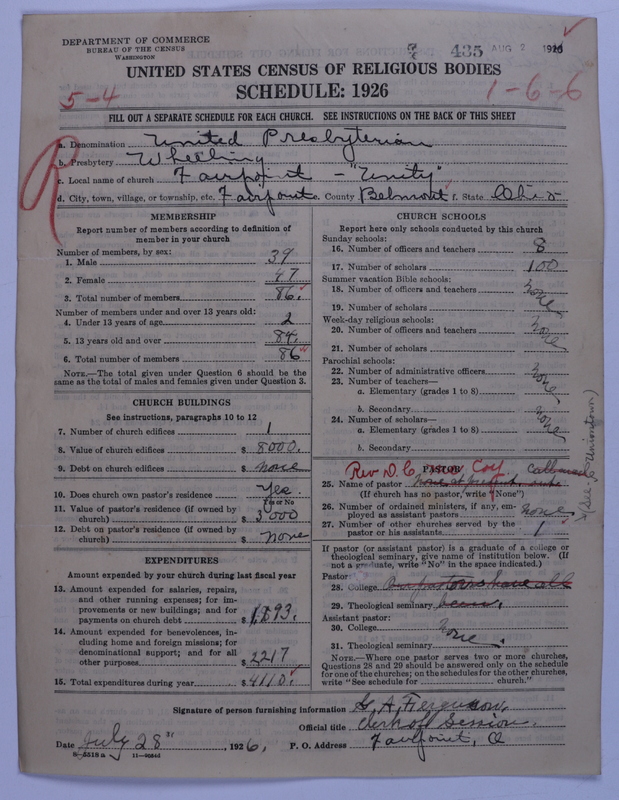 DEPARTMENT OF COMMERCE
BUREAU OF THE CENSUS
WASHINGTON
435 AUG 2 1926
UNITED STATES CENSUS OF RELIGIOUS BODIES
SCHEDULE: 1926
5-4
1-6-6
FILL OUT A SEPARATE SCHEDULE FOR EACH CHURCH. SEE INSTRUCTIONS ON THE BACK OF THIS SHEET
R
a. Denomination United Presbyterian
b. Presbytery Wheeling
c. Local name of church Fairpoint - "Unity"
d. City, town, village, or township, etc. Fairpoint e. County Belmont f. State Ohio
MEMBERSHIP
Report number of members according to definition of
member in your church
Number of members, by sex:
1. Male 39
2. Female 47
3. Total number of members 86.
Number of members under and over 13 years old:
4. Under 13 years of age 2
5. 13 years old and over 84.
6. Total number of members 86
NOTE.—The total given under Question 6 should be the
same as the total of males and females given under Question 3.
CHURCH BUILDINGS
See instructions, paragraphs 10 to 12
7. Number of church edifices 1
8. Value of church edifices $ 8000.
9. Debt on church edifices $ none
10. Does church own pastor's residence Yes
Yes or No
11. Value of pastor's residence (if owned by
church) $ 3000
12. Debt on pastor's residence (if owned by
church) $ none
EXPENDITURES
Amount expended by your church during last fiscal year
13. Amount expended for salaries, repairs,
and other running expenses; for im-
provements or new buildings; and for
payments on church debt $ 1893.
14. Amount expended for benevolences, in-
cluding home and foreign missions; for
denominational support; and for all
other purposes $ 2217
15. Total expenditures during year $ 4110.
CHURCH SCHOOLS
Report here only schools conducted by this church
Sunday schools:
16. Number of officers and teachers 8
17. Number of scholars 100
Summer vacation Bible schools:
18. Number of officers and teachers none
19. Number of scholars
Week-day religious schools:
20. Number of officers and teachers none
21. Number of scholars
Parochial schools:
22. Number of administrative officers none
23. Number of teachers—
a. Elementary (grades 1 to 8)
b. Secondary none
24. Number of scholars—
a. Elementary (grades 1 to 8)
b. Secondary
PASTOR
Rev D. C. Coy
25. Name of pastor None at present
(If church has no pastor, write "None")
26. Number of ordained ministers, if any, em-
ployed as assistant pastors none
27. Number of other churches served by the
pastor or his assistants 1
(See Uniontown)
If pastor (or assistant pastor) is a graduate of a college or
theological seminary, give name of institution below. (If
not a graduate, write "No" in the space indicated.)
Pastor:
28. College Our pastors have all
29. Theological seminary been.
Assistant pastor:
30. College none
31. Theological seminary
NOTE.—Where one pastor serves two or more churches,
Questions 28 and 29 should be answered only on the schedule
for one of the churches; on the schedules for the other churches,
write "See schedule for church."
Signature of person furnishing information G. A. Ferguson,
Official title Clerk of Session.
Date July 28", 1926. P. O. Address Fairpoint, O